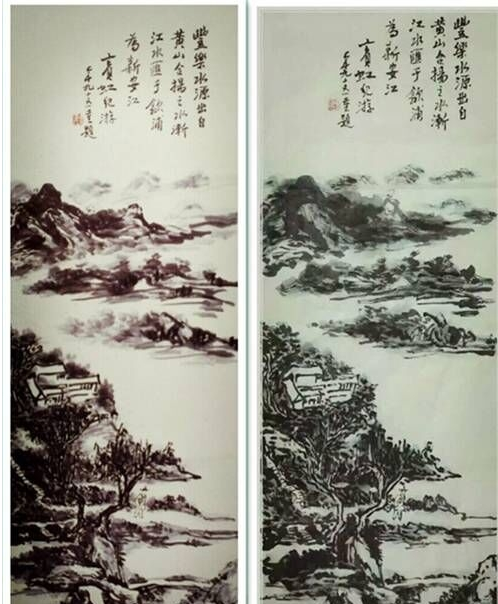 豐樂水源出自
黄山合揚之水漸
江水匯于歙浦
為新安江
賓虹紀游
午九十重題
豐樂水源出自
黄山合揚之水漸
江水匯于歙浦
為新安江
賓虹紀游
午九十重題